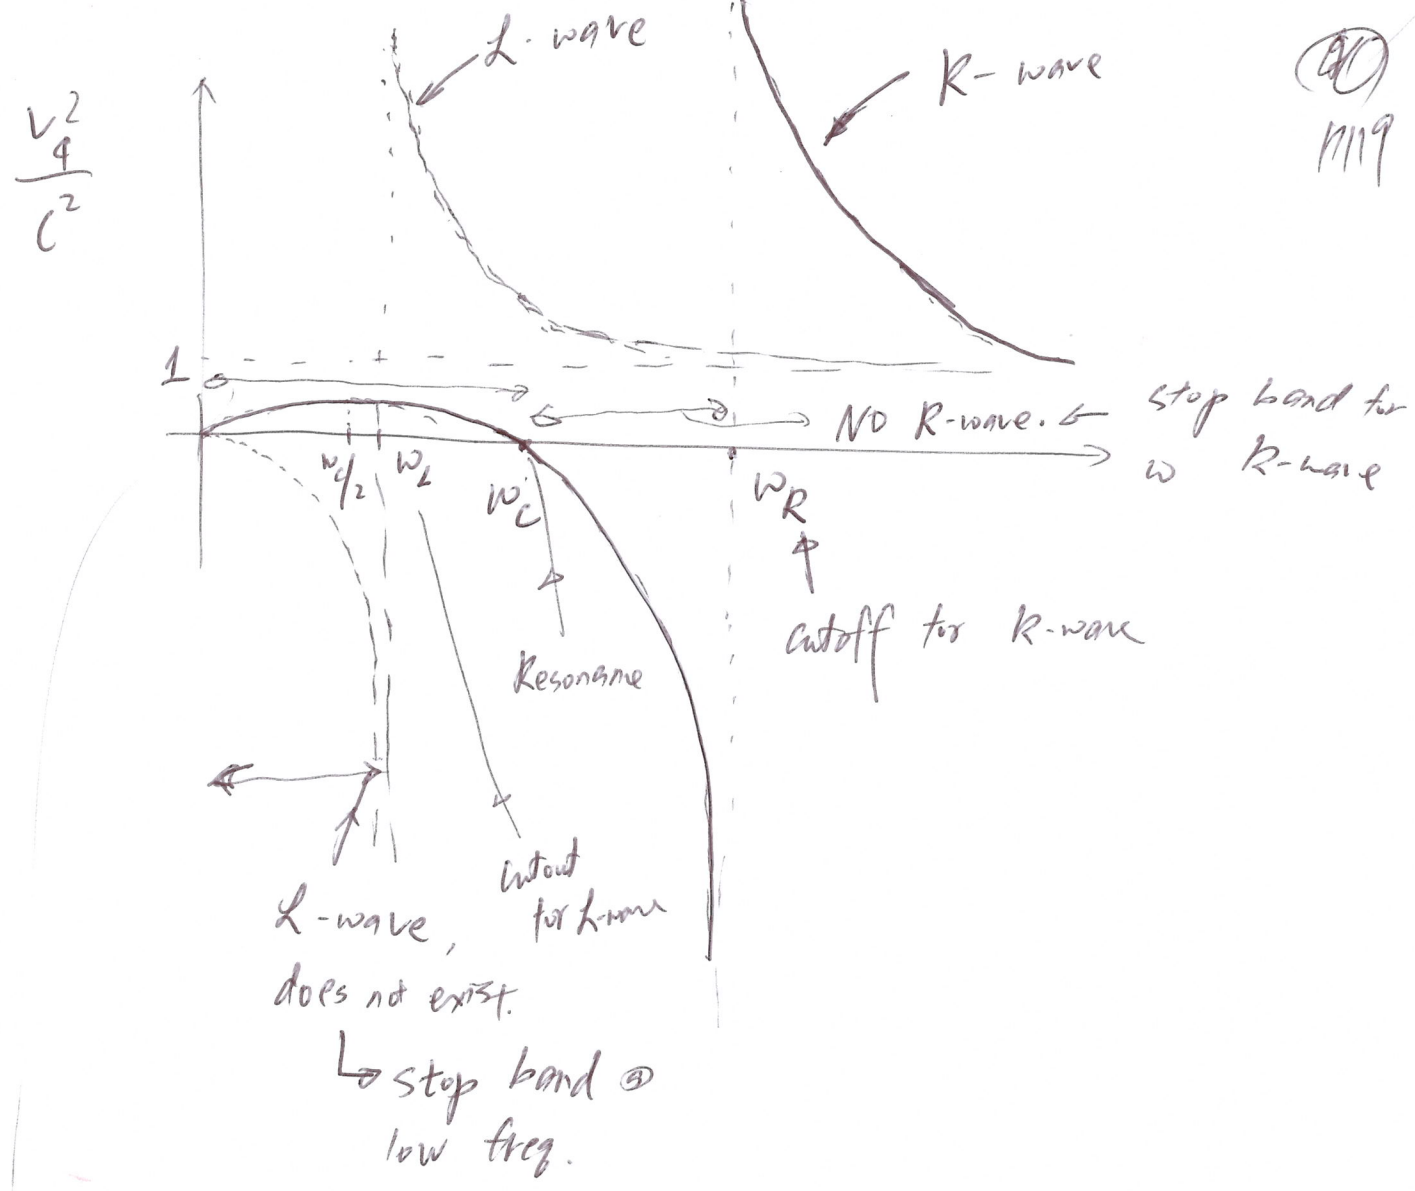 L-wave
R-wave
90
V²φ
C²
1
NO R-wave. ← stop band for
ω R-wave
ωc/2 ωL ωc ωR
cutoff for R-wave
Resonance
cutout
for L-wave
L-wave,
does not exist.
↳ stop band @
low freq.